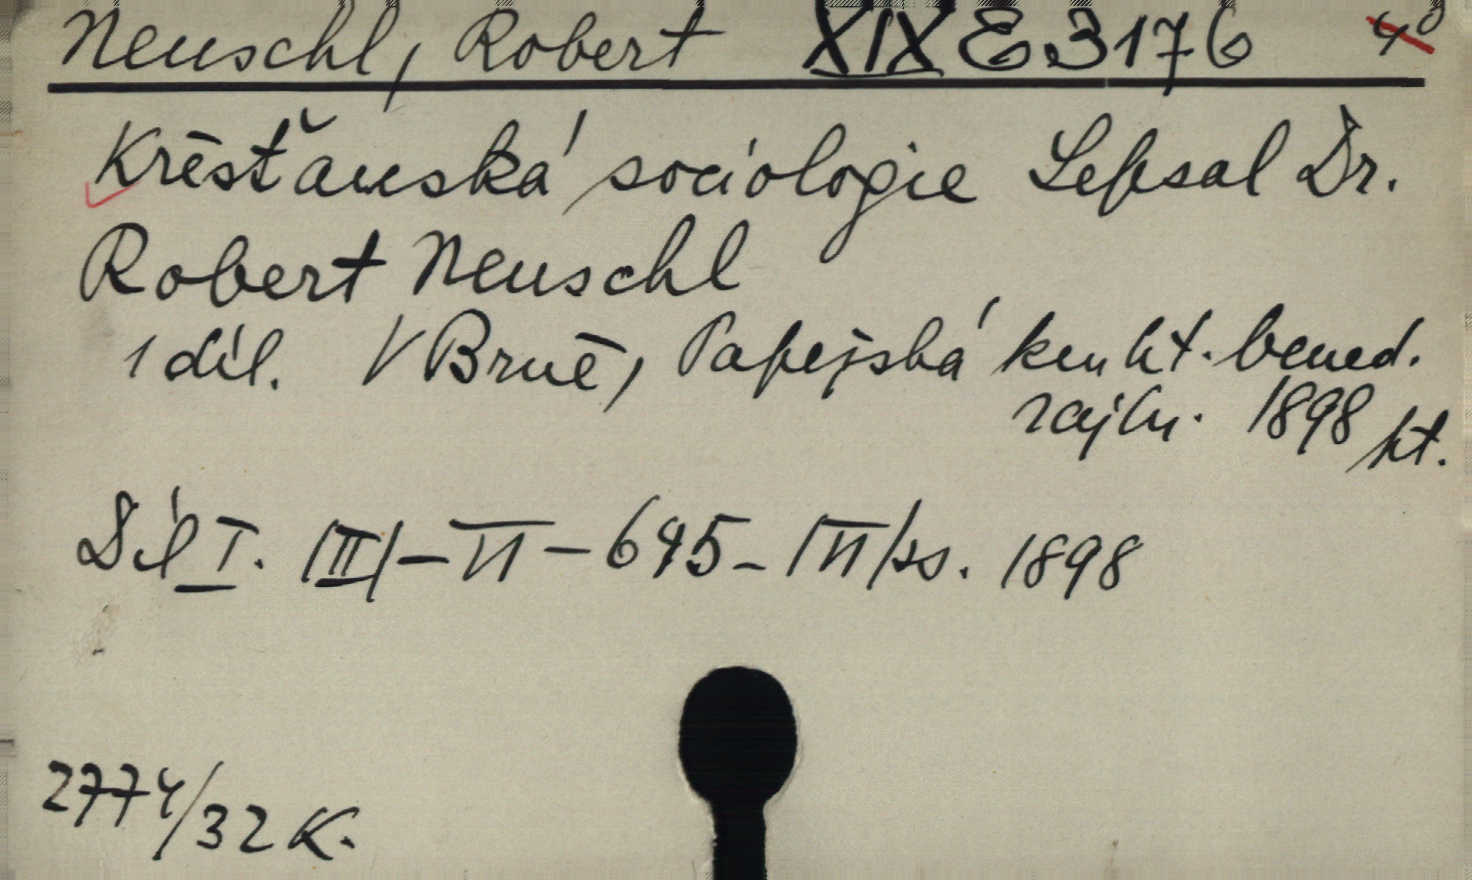 Neuschl, Robert XIX E 3176 4°
Křesťanská sociologie Sepsal Dr.
Robert Neuschl
1 díl. V Brně, Papežská kniht. bened.
rajhr. 1898 kt.
Díl I. /III/-VI-645-/VI/ss. 1898
2774/32 K.